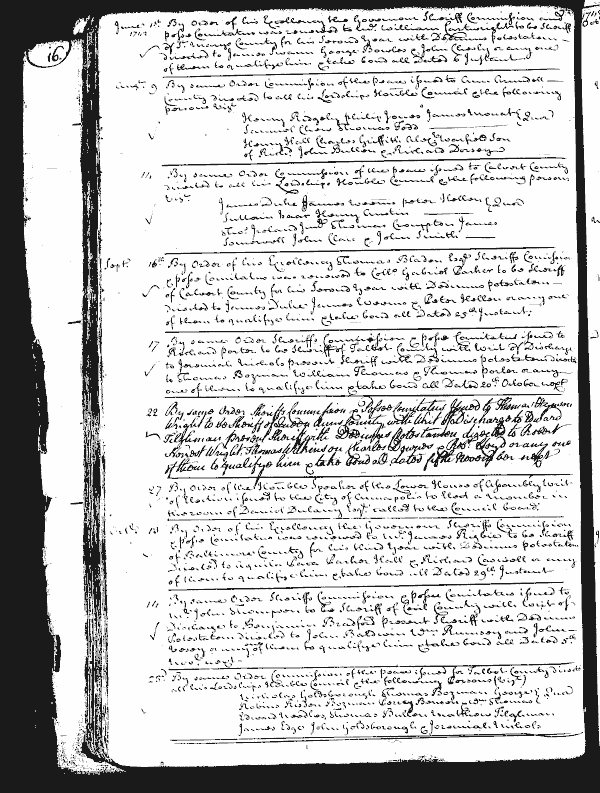 16.
June 1st By Order of his Excellency the Governour Sheriff Commission and
1742 posse Comitatus was renewed to Mr. William Cartwright to be Sheriff
of St. Marys County for his Second Year with Dedimus potestatem
directed to James Swann George Bowles & John Chesly or any one
of them to qualifye him & take bond all Dated 6 Instant
Augt. 9 By same Order Commission of the peace issued to Ann Arundell
County directed to all his Lordships Honble Council & the following
persons Vizt.
Henry Ridgely philip Jones James Mouat Quor
Samuel Chew Thomas Todd
Henry Hall Charles Griffith Alexr Warfield Son
of Richd. John Bullen & Richard Dorsey
11 By same Order Commission of the peace issued to Calvert County
directed to all his Lordships Honble Council & the following persons
Vizt.
James Duke James Weems peter Hellen Quor
Sutton Isaac Henry Austin
Thos. Ireland Junr. Thomas Crompton James
Somervell John Clare & John Smith
Sept. 16th By Order of his Excellency Thomas Bladen Esqr. Sheriffs Commission
& posse Comitatus was renewed to Collo. Gabriel Parker to be Sheriff
of Calvert County for his Second year with Dedimus potestatem
directed to James Duke James Weems & Peter Hellen or any one
of them to qualifye him & take bond all Dated 25th Instant.
17 By same Order Sheriffs Commission & posse Comitatus issued to
Richard porter to be Sheriff of Talbot County with Writ of Discharge
to Jeremiah Nichols present Sheriff with Dedimus potestatem directed
to Thomas Bozman William Thomas & Thomas porter or any
one of them to qualifye him & take bond all Dated 20th October next
22 By same Order Sheriffs Commission & Posse Comitatus Issued to Thomas Hynson
Wright to be Sheriff of Queen Anns County with Writ of Discharge to Edward
Tilghman present Sheriff with Dedimus Potestatem directed to Robert
Norrest Wright Thomas Wilkinson Charles Downes or any one
of them to qualifye him & take bond all dated fifth November next
27 By Order of the Honble Speaker of the Lower House of Assembly Writ
of Election issued to the City of Annapolis to Elect a Member in
the room of Daniel Dulany Esqr. called to the Council board
10 By Order of his Excellency the Governour Sheriffs Commission
& posse Comitatus was renewed to Mr. James Rigbie to be Sheriff
of Baltimore County for his third Year with Dedimus potestatem
Directed to Aquila Paca Parker Hall & Richard Caswell or any
of them to qualifye him & take bond all Dated 29th Instant
11 By same Order Sheriffs Commission & posse Comitatus issued to
Mr. John Thompson to be Sheriff of Cecil County with Writ of
discharge to Benjamin Bradford present Sheriff with Dedimus
Potestatem directed to John Baldwin Wm. Rumsey and John
Veazy or any of them to qualifye him & take bond all Dated 5th
Novr. next
25 By same Order Commission of the peace issued for Talbot County directed
all his Lordships Honble Council & the following Persons (Vizt.)
Nicholas Goldsborough Thomas Bozman George Quor
Robins Risdon Bozman perry Benson Wm. Thomas
Edward Needles Thomas Bullen Matthew Tilghman
James Edge John Goldsborough & Jeremiah Nichols